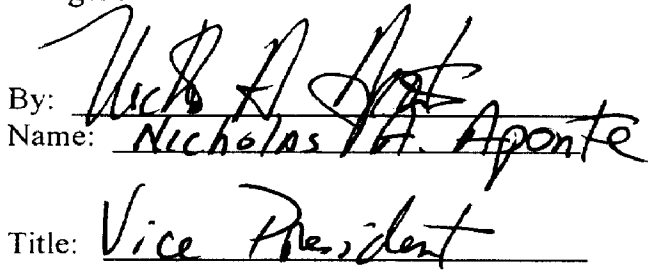 By:
Name: Nicholas A. Aponte
Title: Vice President